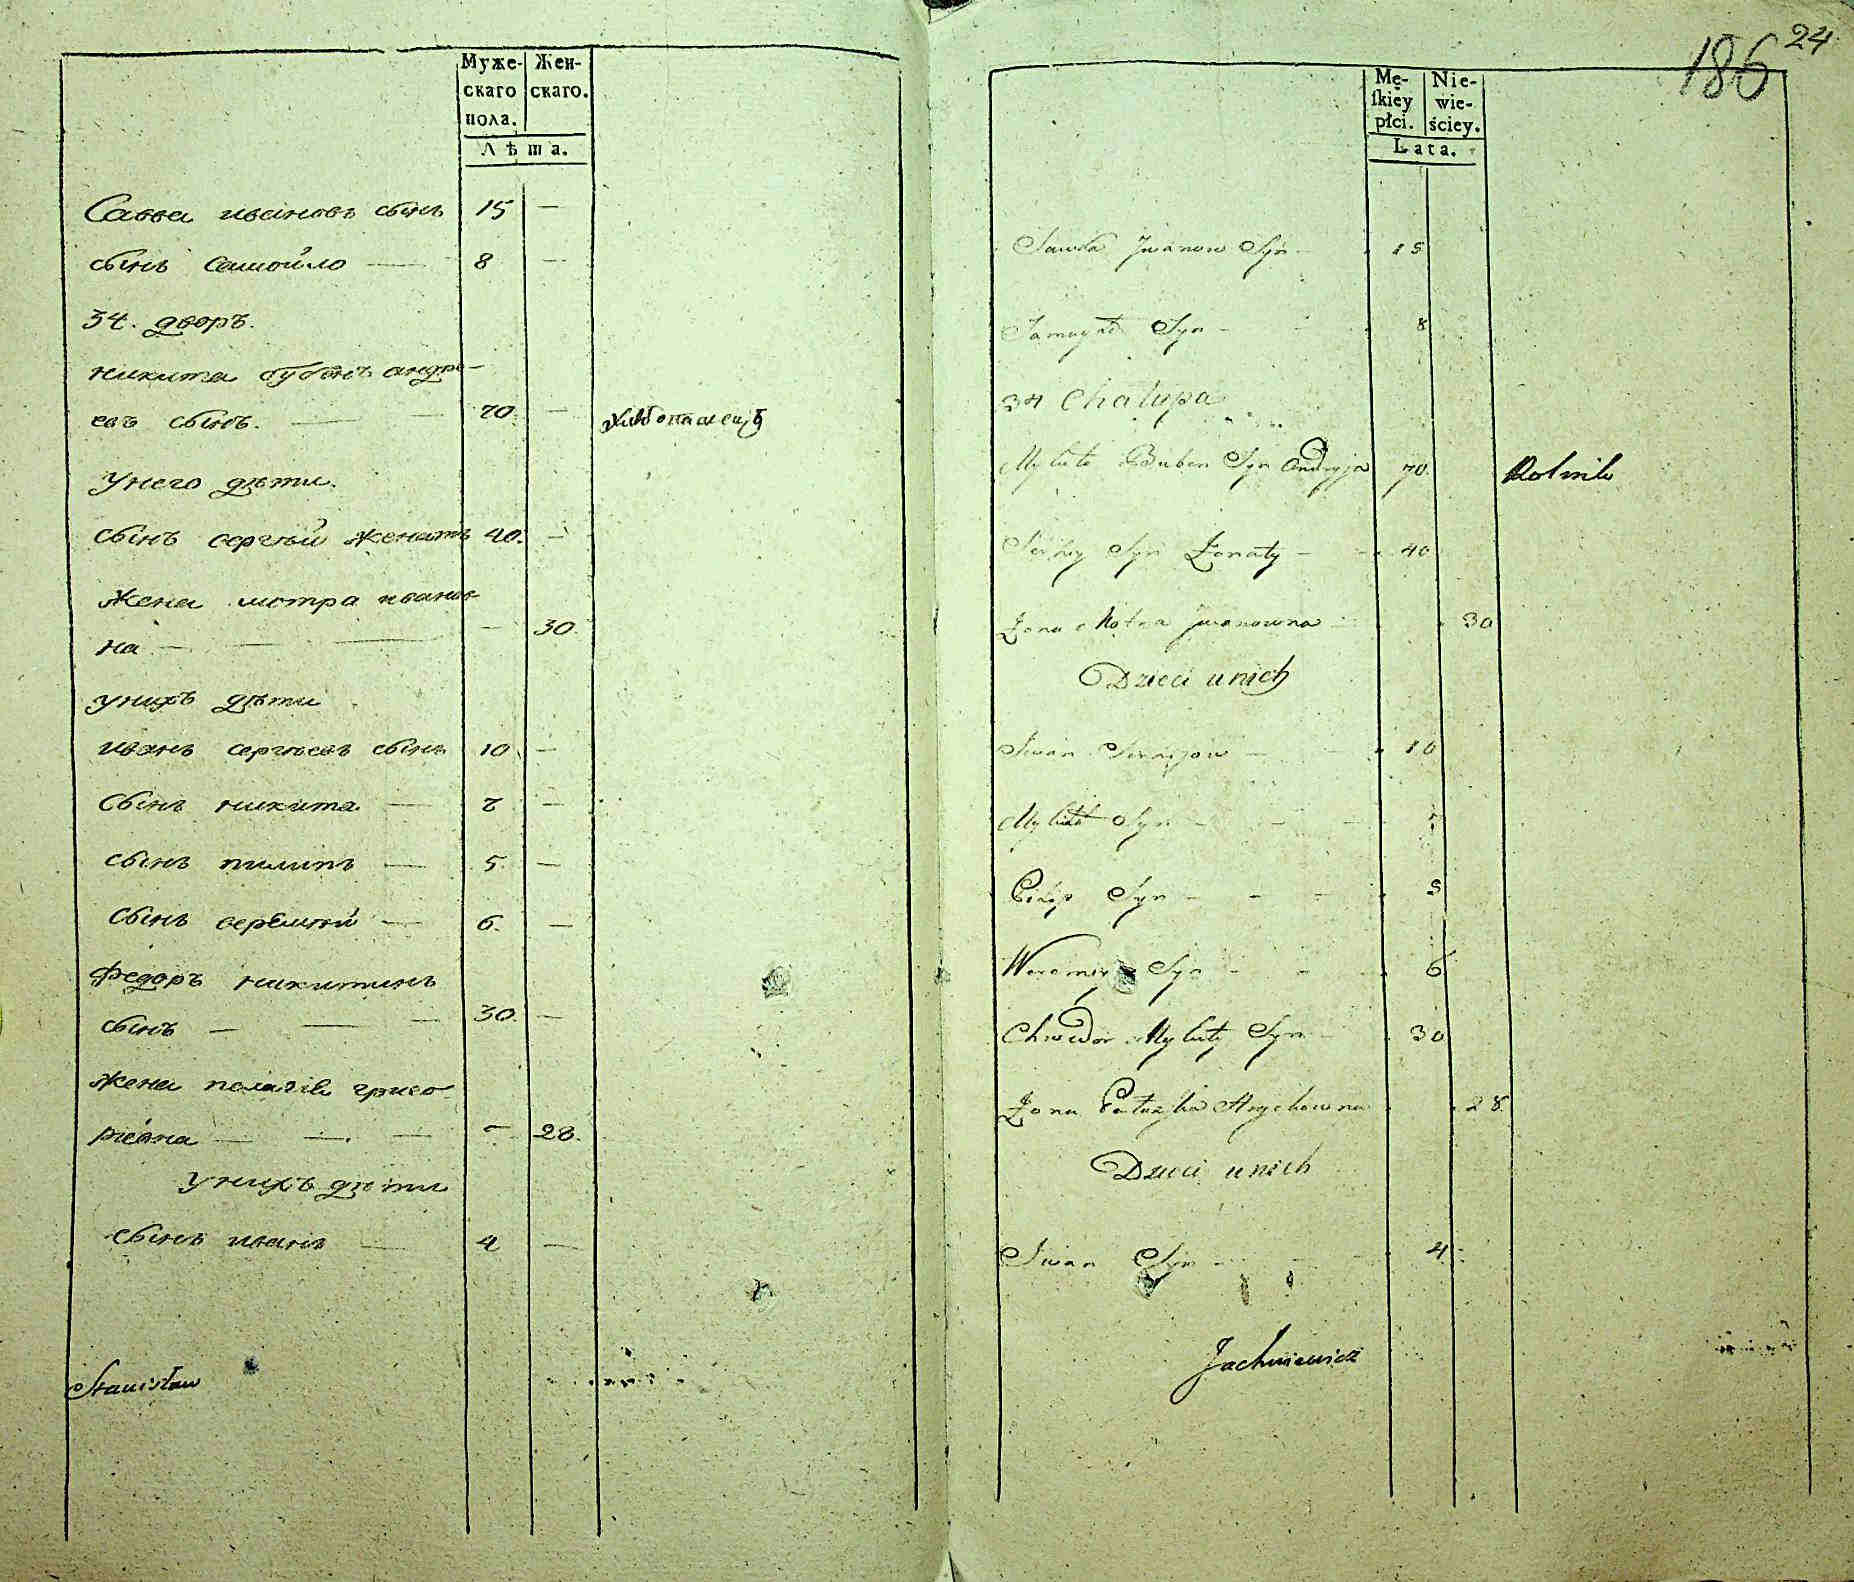 Муже- Жен-
скаго скаго.
пола.
Лѣта.
Савва ивановъ сынъ 15 —
сынъ самойло — 8 —
34. дворъ.
никита бубенъ андре-
евъ сынъ. — — 70. — хлѣбопашецъ
унего дѣти.
сынъ сергѣй женатъ 40. —
жена мотра иванов
на — — — 30.
унихъ дѣти
иванъ сергѣевъ сынъ 10 —
сынъ никита — 7 —
сынъ пилипъ — 5. —
сынъ веремѣй — 6. —
Федоръ никитинъ
сынъ — — — 30. —
жена палагiя григо
рiевна — — — — 28.
унихъ дѣти
сынъ иванъ — 4 —
Stanisław
186 24
Mę- Nie-
ſkiey wie-
płci. ściey.
Lata.
Sawka Jwanow Syn — 15
Samuyło Syn — 8
34 Chałupa
Mykita Buben Syn Andryja 70 Rolnik
Serhiy Syn Żonaty — 40
Żona Motra Jwanowna — 30
Dzieci u nich
Jwan Serhijow — 10
Mykita Syn — 7
Pilip Syn — 5
Weremiy Syn — 6
Chwedor Mykity Syn — 30
Żona Hrychowna 28
Dzieci u nich
Jwan Syn — 4
Jachniewicz